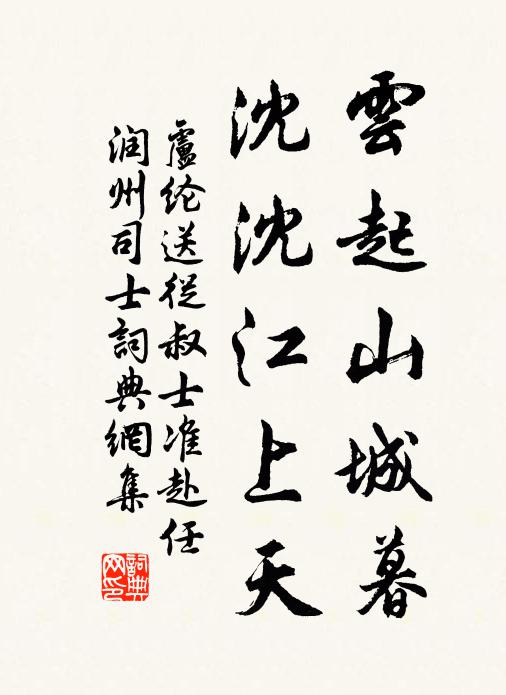 雲起山城暮
沈沈江上天
盧纶送從叔士准赴任
润州司士詞典網集
詞典
网印